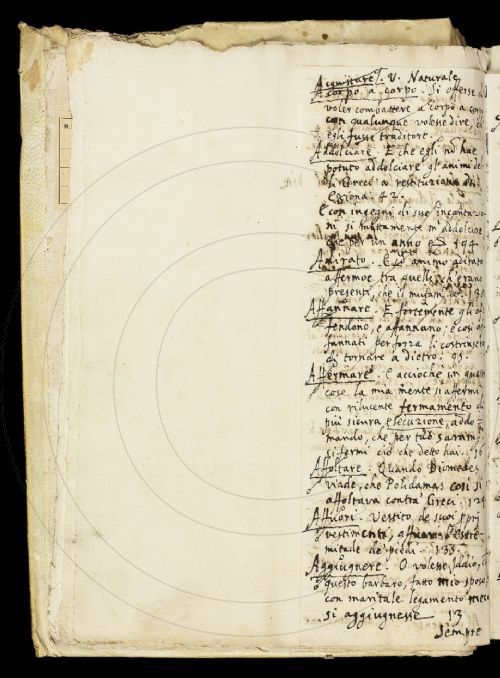 Acquistare. V. Naturale
A corpo, a corpo. Si offerse
voler combattere a corpo a corpo
con qualunque volesse dire,
egli fusse traditore.
Addolciare. E che egli nō hae
potuto addolciare gl'animi de
li Greci a restituzione di
Esiona. 42.
E con ingegni di sue incantazio
ni si mattamente m'addolcio
che per un anno 194
Adirato. animo adirato
affermoe tra quelli ch'erano
presenti, che il
Affannare. E fortemente gli of
fendono, e afannano; e così af
fannati per forza li costrensero
di tornare a dietro. 95.
Affermare. E acciochè in queste
cose la mia mente si affermi
con rilucente fermamento
più sicura esecuzione, addo
mando, che per tuo saram.
si fermi ciò che detto hai. 16
Affoltare. Quando Diomedes
vide, che Polidamas così si
affoltava contra Greci. 124
Affuori. Vestito de suoi pri
vestimenti, affuora l'estre
mitade de' piedi. 133.
Aggiugnere. O volesse Iddio,
questo barbaro, fatto mio sposo
con maritale legamento meco
si aggiugnesse 13
Sempre
R.